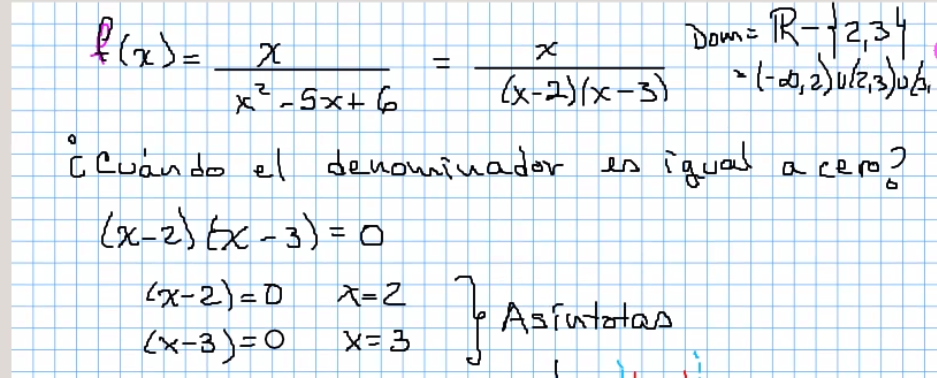 f(x) = x / (x² - 5x + 6) = x / ((x-2)(x-3))
Dom = ℝ - {2,3}
= (-∞,2)∪(2,3)∪(3,
¿Cuándo el denominador es igual a cero?
(x-2)(x-3) = 0
(x-2)=0 x=2
(x-3)=0 x=3
} Asíntotas